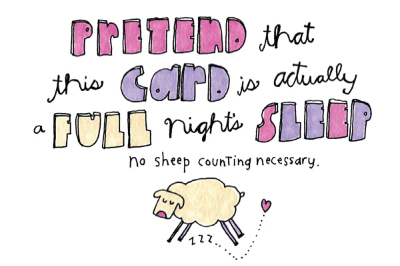 PRETEND that
this CARD is actually
a FULL night's SLEEP
no sheep counting necessary.
zzz...